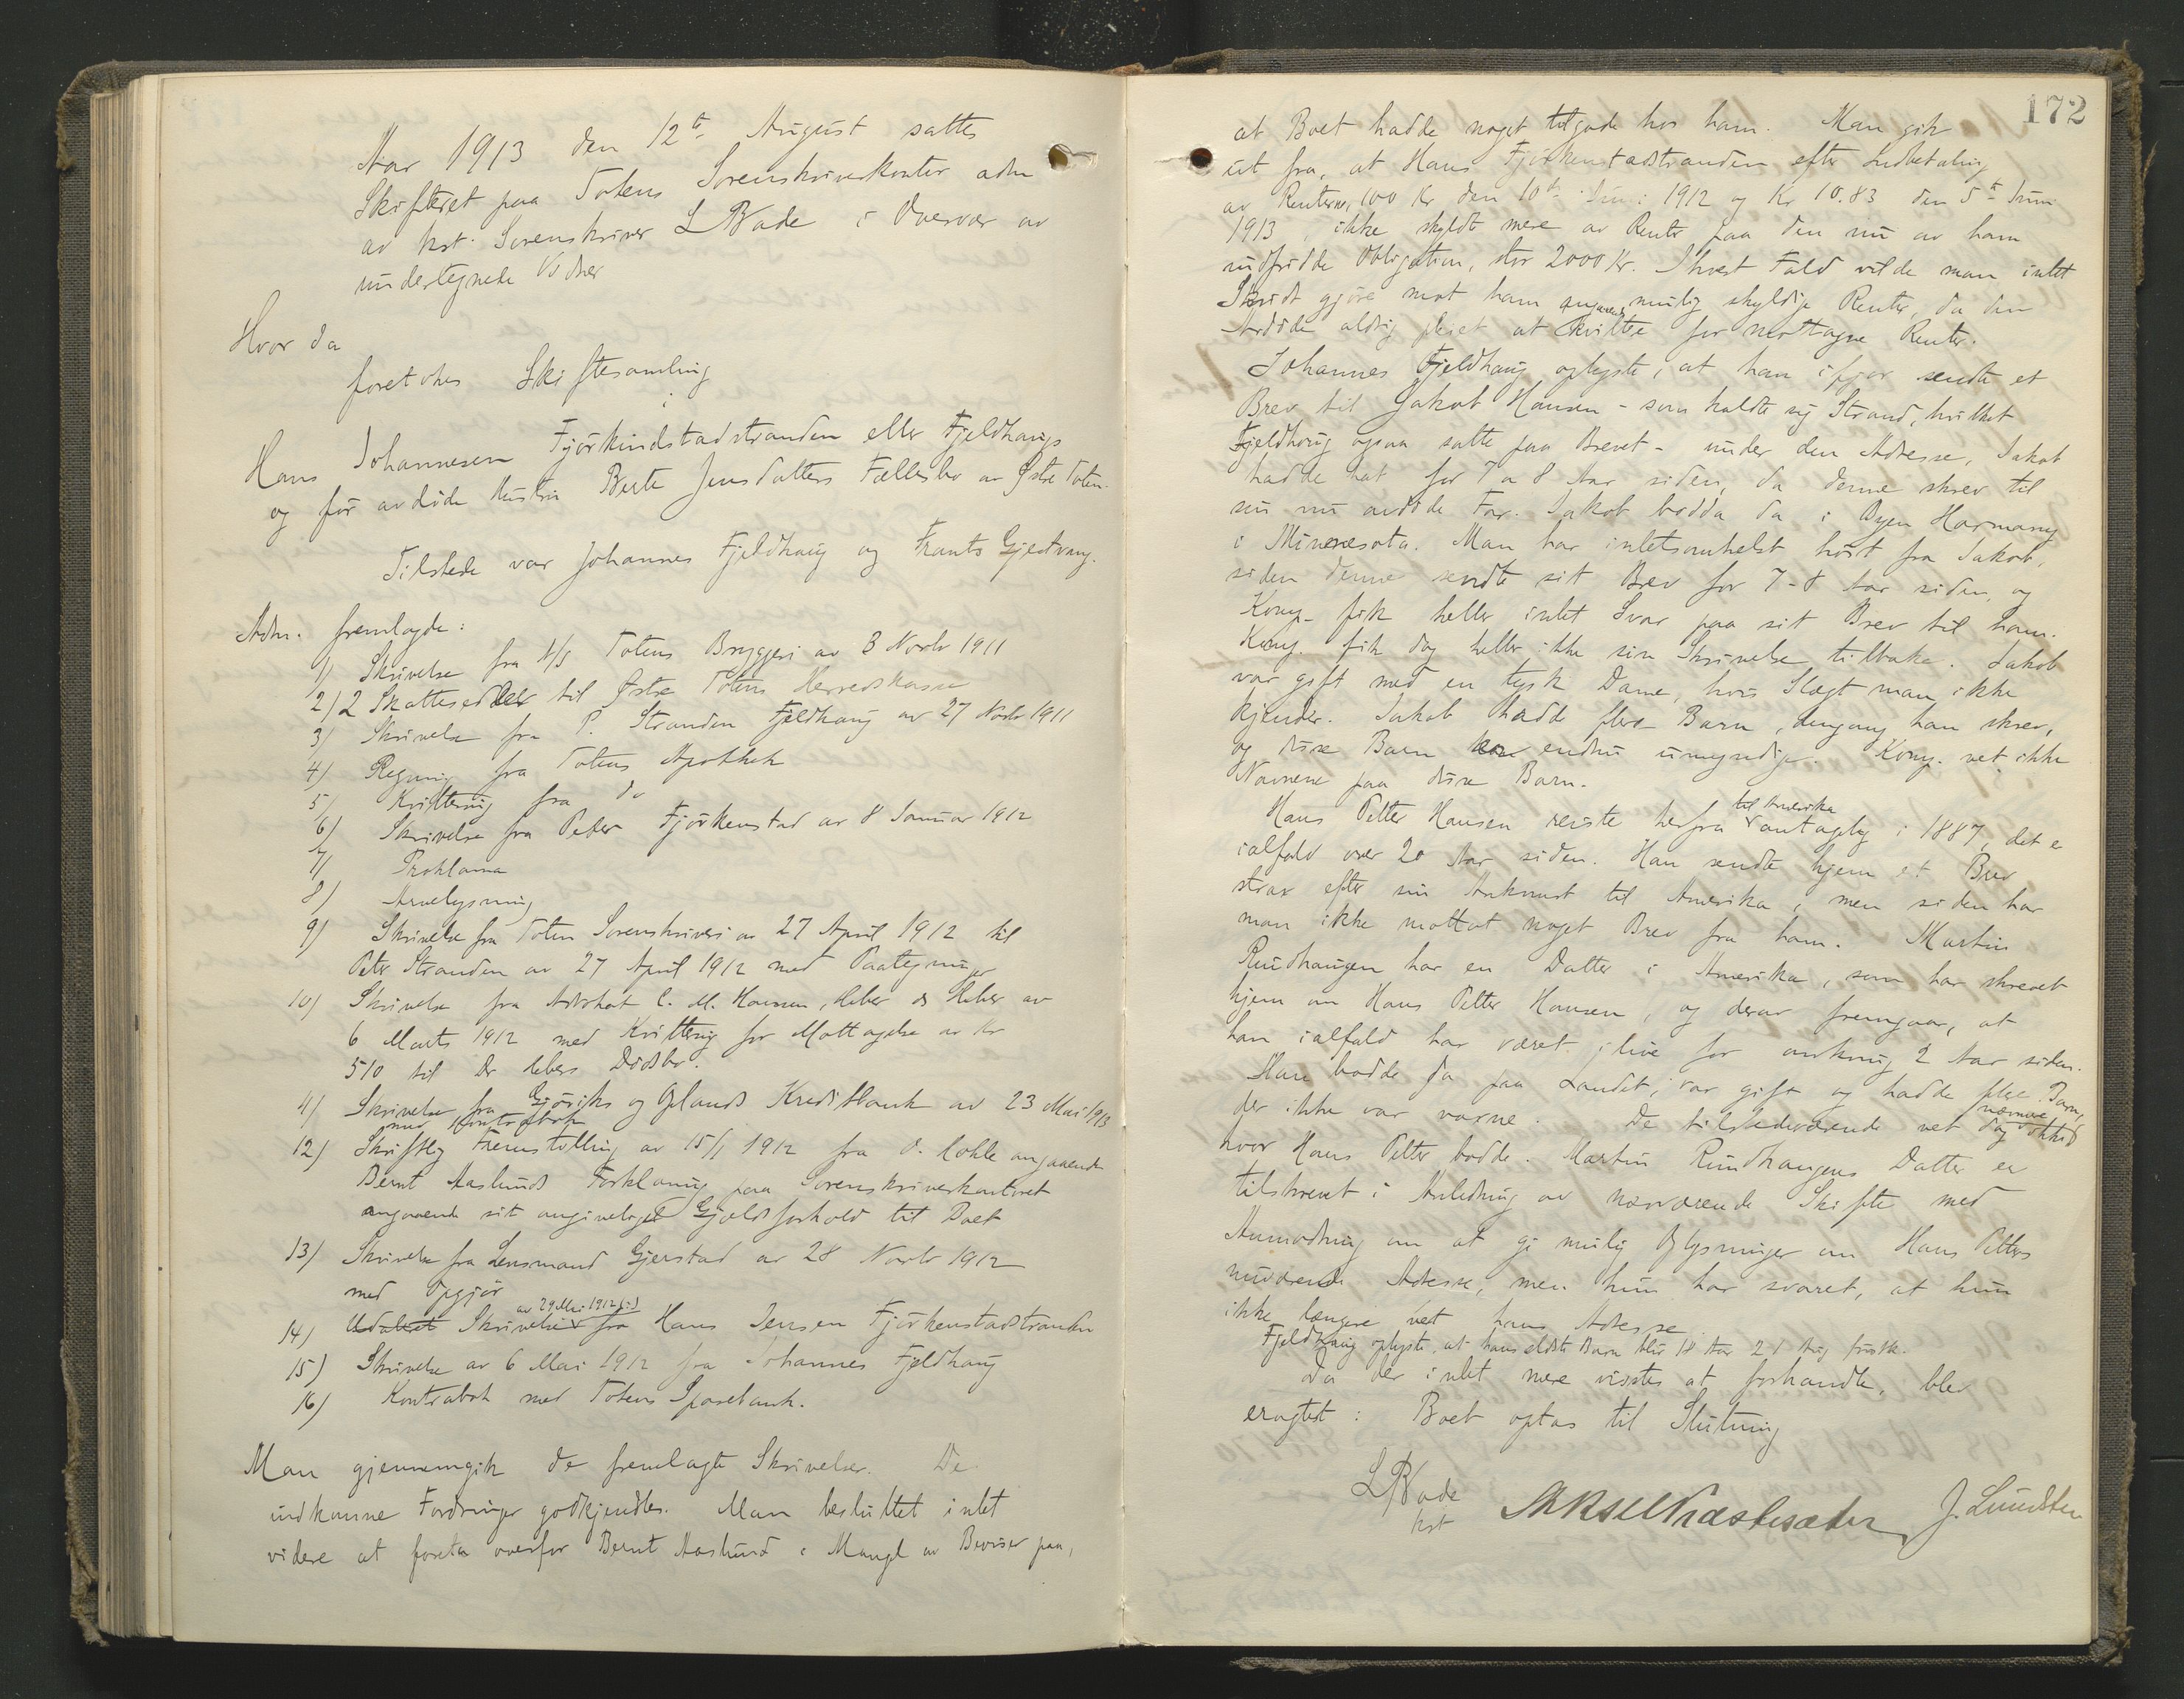 Aar 1913 den 12te August sattes
Skifteret paa Totens Sorenskriverkontor adm
av kst. Sorenskriver L Bade i Overvær av
undertegnede Vidner
Hvor da
foretokes Skiftesamling
i
Hans Johannesen Fjörkindstadstranden eller Fjeldhaugs
og før avdöde Hustru Berte Jensdatters Fællesbo av Østre Toten.
Tilstede var Johannes Fjeldhaug og Frants Gjestvang.
Adm. fremlagde:
1) Skrivelse fra A/S Totens Bryggeri av 3 Novbr 1911
2) 2 Skattesedler til Østre Totens Herredskasse
3) Skrivelse fra P. Stranden Fjeldhaug av 27 Novbr 1911
4) Regning fra Totens Apothek
5) Kvittering fra do
6) Skrivelse fra Peter Fjörkenstad av 8 Januar 1912
7) Proklama
8) Arvelysning
9) Skrivelse fra Toten Sorenskriveri av 27 April 1912 til
Peter Stranden av 27 April 1912 med Paategninger
10) Skrivelse fra Advokat C. M. Hansen, Heber og Heber av
6 Marts 1912 med Kvittering for Mottagelse av Kr
510 til Dr Hebers Dödsbo.
11) Skrivelse fra Gjöviks og Oplands Kreditbank av 23 Mai 1913
med Kontrabok
12) Skriftlig Fremstilling av 15/1 1912 fra O. angaaende
Bernt Haslunds Forklaring paa Sorenskriverkontoret
angaaende sit angivelige Gjældsforhold til Boet
13) Skrivelse fra Lensmand Gjerstad av 28 Novbr 1912
med Opgjör
av 29 Mai 1912 (:)
14) Udatert Skrivelse fra Hans Jensen Fjörkenstadstranden
15) Skrivelse av 6 Mai 1912 fra Johannes Fjeldhaug
16) Kontrabok med Totens Sparebank.
Man gjennemgik de fremlagte Skrivelser. De
indkomne Fordringer godkjendtes. Man besluttet intet
videre at foreta overfor Bernt Haslund i Mangel av Beviser paa,
172
at Boet hadde noget tilgode hos ham. Man gik
ut fra, at Hans Fjörkenstadstranden efter Indbetaling
av Renterne, 100 Kr den 10de Juni 1912 og Kr 10.83 den 5te Juni
1913, ikke skyldt mere av Renter paa den nu av ham
indfridde Obligation, stor 2000 Kr. I hvert Fald vilde man intet
Skridt gjöre mot ham angaaende mulig skyldige Renter, da den
Avdöde aldrig pleiet at kvittere for mottagne Renter.
Johannes Fjeldhaug oplyste, at han ifjor sendte et
Brev til Jakob Hansen - som kaldte sig Strand, hvilket
Fjeldhaug ogsaa satte paa Brevet - under den Adresse, Jakob
hadde hat for 7 a 8 Aar siden, da denne skrev til
sin nu avdöde Far. Jakob bodde da i Byen Harmany
i Minnesota. Man har intetsomhelst hört fra Jakob,
siden denne sendte sit Brev for 7-8 Aar siden, og
Komp. fik heller intet Svar paa sit Brev til ham.
Komp. fik dog heller ikke sin Skrivelse tilbake. Jakob
var gift med en tysk Dame, hvis Slægt man ikke
kjender. Jakob hadde flere Barn, dengang han skrev,
og disse Barn er endnu umyndige. Komp. vet ikke
Navnene paa disse Barn.
til Amerika
Hans Petter Hansen reiste herfra antagelig i 1887, det er
ialfald over 20 Aar siden. Han sendte hjem et Brev
strax efter sin Ankomst til Amerika, men siden har
man ikke mottat noget Brev fra ham. Martin
Rundhaugen har en Datter i Amerika, som har skrevet
hjem om Hans Petter Hansen, og derav fremgaar, at
han ialfald har været ilive for omkring 2 Aar siden.
Han bodde da paa Landet, var gift og hadde flere Barn,
der ikke var voxne. De tilstedeværende vet dog ikke
nærmere
hvor Hans Petter bodde. Martin Rundhaugens Datter er
tilskrevet i Anledning av nærværende Skifte med
Anmodning om at gi mulig Oplysninger om Hans Petters
nuværende Adresse, men hun har svaret, at hun
ikke længere vet hans Adresse
Fjeldhaug oplyste, at hans eldste Barn blir 18 Aar 21 Aug förstk.
Da der intet mere visstes at forhandle, blev
eragtet: Boet optas til Slutning
L Bade
kst
Aksel Præstesæter
J. Lundsten